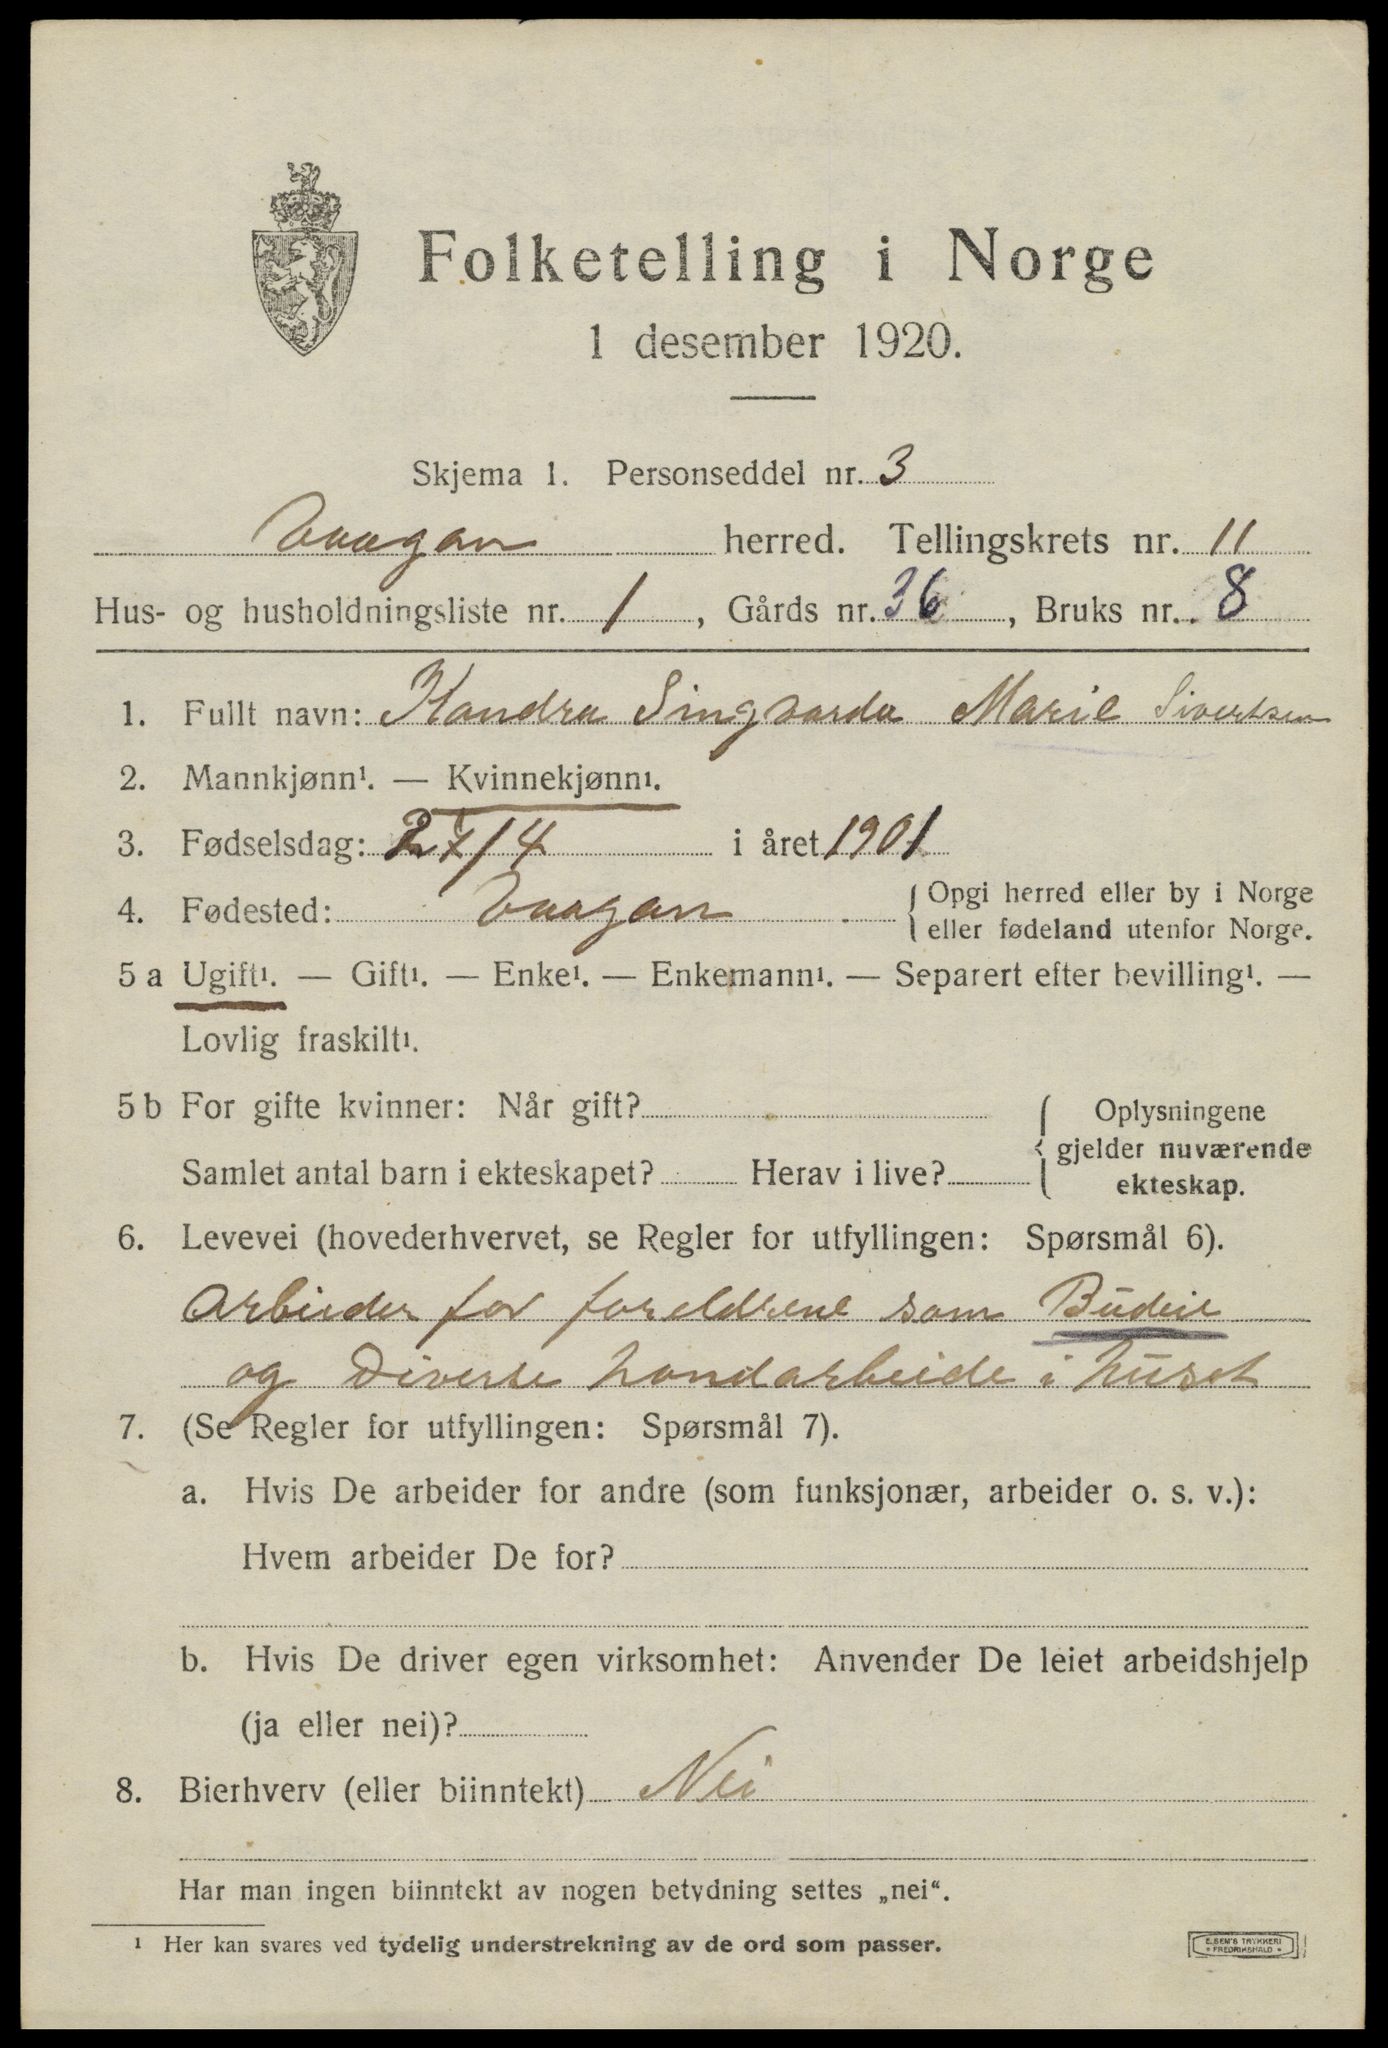 Folketelling i Norge
1 desember 1920.
Skjema 1. Personseddel nr. 3
Vaagan herred. Tellingskrets nr. 11
Hus- og husholdningsliste nr. 1, Gårds nr. 36, Bruks nr. 8
1. Fullt navn: Kandra Singvarda Marie Sivertsen
2. Mannkjønn¹. — Kvinnekjønn¹.
3. Fødselsdag: 27/4 i året 1901
4. Fødested: Vaagan { Opgi herred eller by i Norge
eller fødeland utenfor Norge.
5 a Ugift¹. — Gift¹. — Enke¹. — Enkemann¹. — Separert efter bevilling¹. —
Lovlig fraskilt¹.
5 b For gifte kvinner: Når gift? { Oplysningene
gjelder nuværende
Samlet antal barn i ekteskapet? Herav i live?
ekteskap.
6. Levevei (hovederhvervet, se Regler for utfyllingen: Spørsmål 6).
Arbieder for foreldrene som Budeie
og Diverse handarbeide i huset
7. (Se Regler for utfyllingen: Spørsmål 7).
a. Hvis De arbeider for andre (som funksjonær, arbeider o. s. v.):
Hvem arbeider De for?
b. Hvis De driver egen virksomhet: Anvender De leiet arbeidshjelp
(ja eller nei)?
8. Bierhverv (eller biinntekt) Nei
Har man ingen biinntekt av nogen betydning settes „nei“.
¹ Her kan svares ved tydelig understrekning av de ord som passer.
E. SEM'S TRYKKERI
• FREDRIKSHALD •